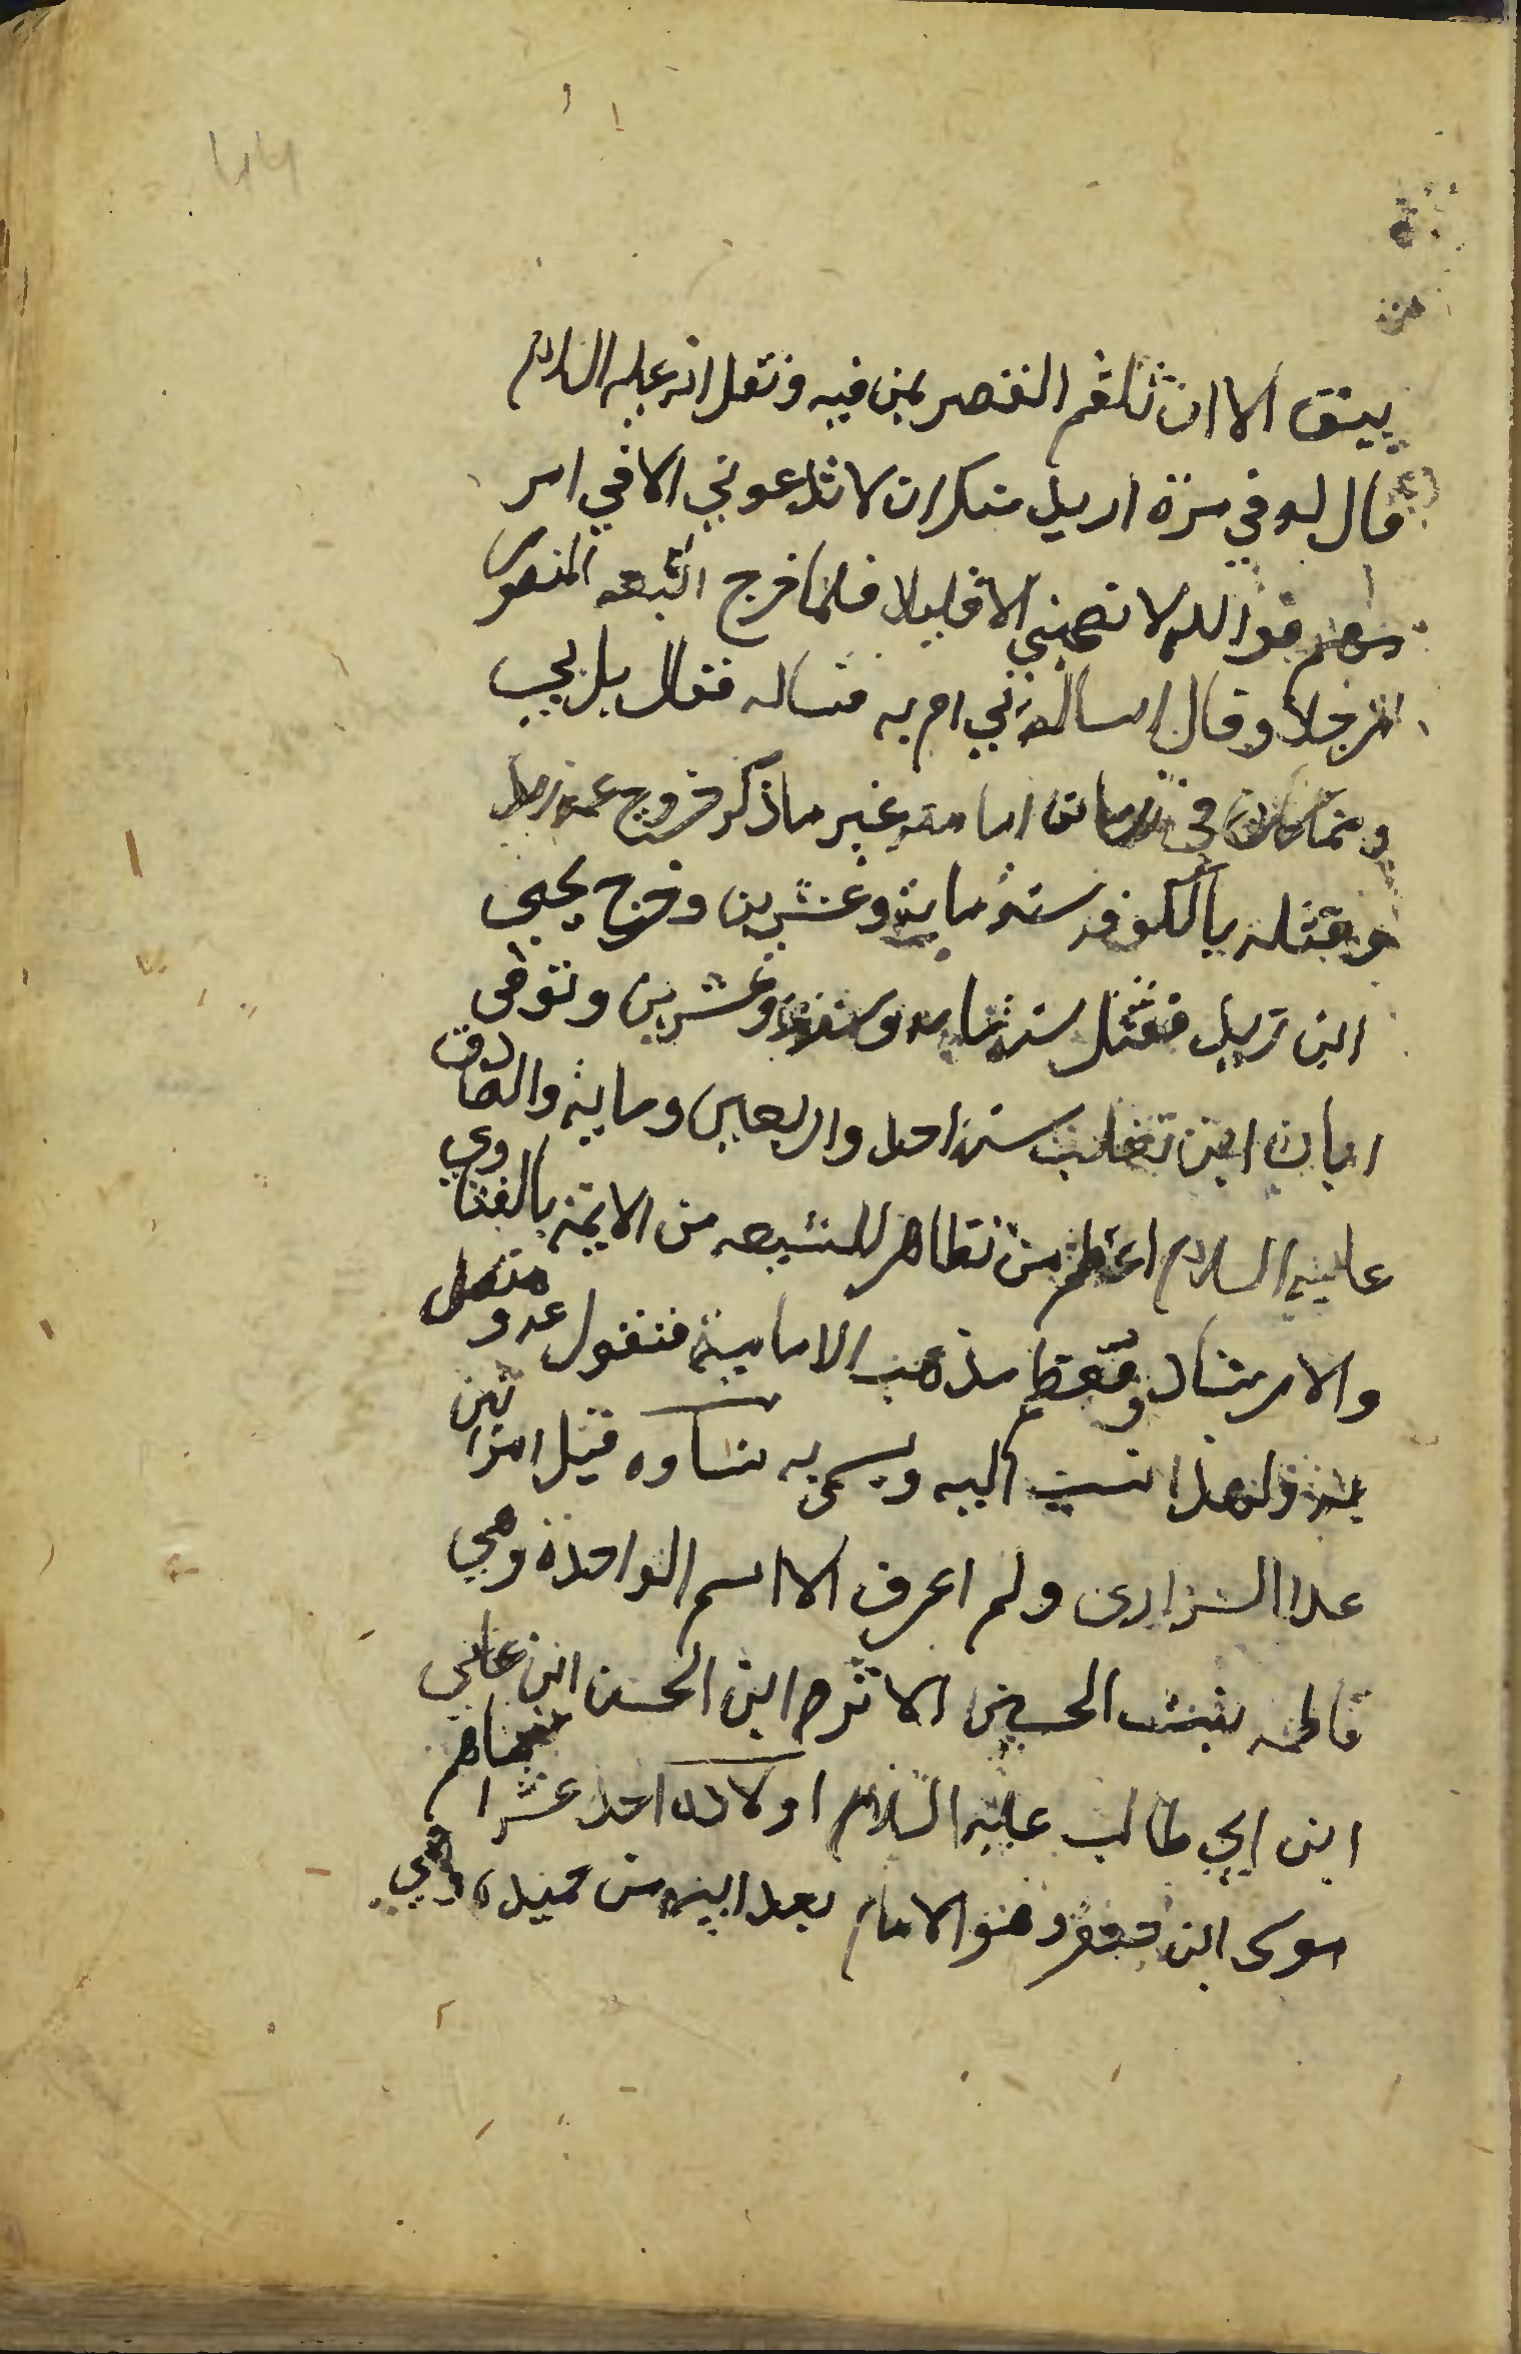 يبق الا ان تلقم القصر بمن فيه ونقل انه عليه السلام
قال له في مرة اريد منك ان لا تدعوني الا في امر
مهم فوالله لا تصحبني الا قليلا فلما خرج اتبعه المنصور
رجلا وقال اساله بي ام به فساله فقال بل بي
ومما كان في زمان امامته غير ما ذكر خروج عمه زيد
وقتله بالكوفه سنة ماية وعشرين وخرج يحيى
ابن زيد فقتل سنة ماية وعشرين وتوفى
ابان ابن تغلب سنة احد واربعين وماية والصادق
عليه السلام اعظم من تظاهر للشيعه من الايمة بالفتاوي
والارشاد ومعظم مذهب الامامية منقول عنه و
ولهذا نسب اليه ويسمى به نساوه قيل امراتين
عدا السراري ولم اعرف الا اسم الواحدة وهي
فاطمه بنت الحسين الاثرم ابن الحسن ابن علي
ابن ابي طالب عليه السلام اولاده احد عشر
موسى ابن جعفر وهو الامام بعد ابيه من حميدة وهي